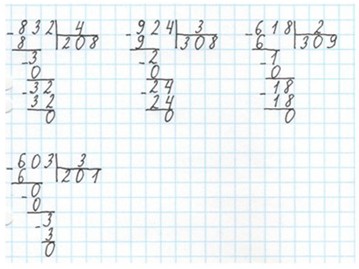 -832|4 -924|3 -618|2
8 |208 9 |308 6 |309
-3 -2 -1
0 0 0
-32 -24 -18
32 24 18
0 0 0
-603|3
6 |201
-0
0
-3
3
0